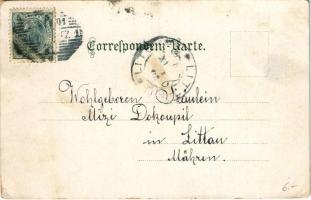 Correspondenz-Karte.
Wohlgeboren Fräulein
Mizi Dokoupil
in Littau
Mähren.
6.-